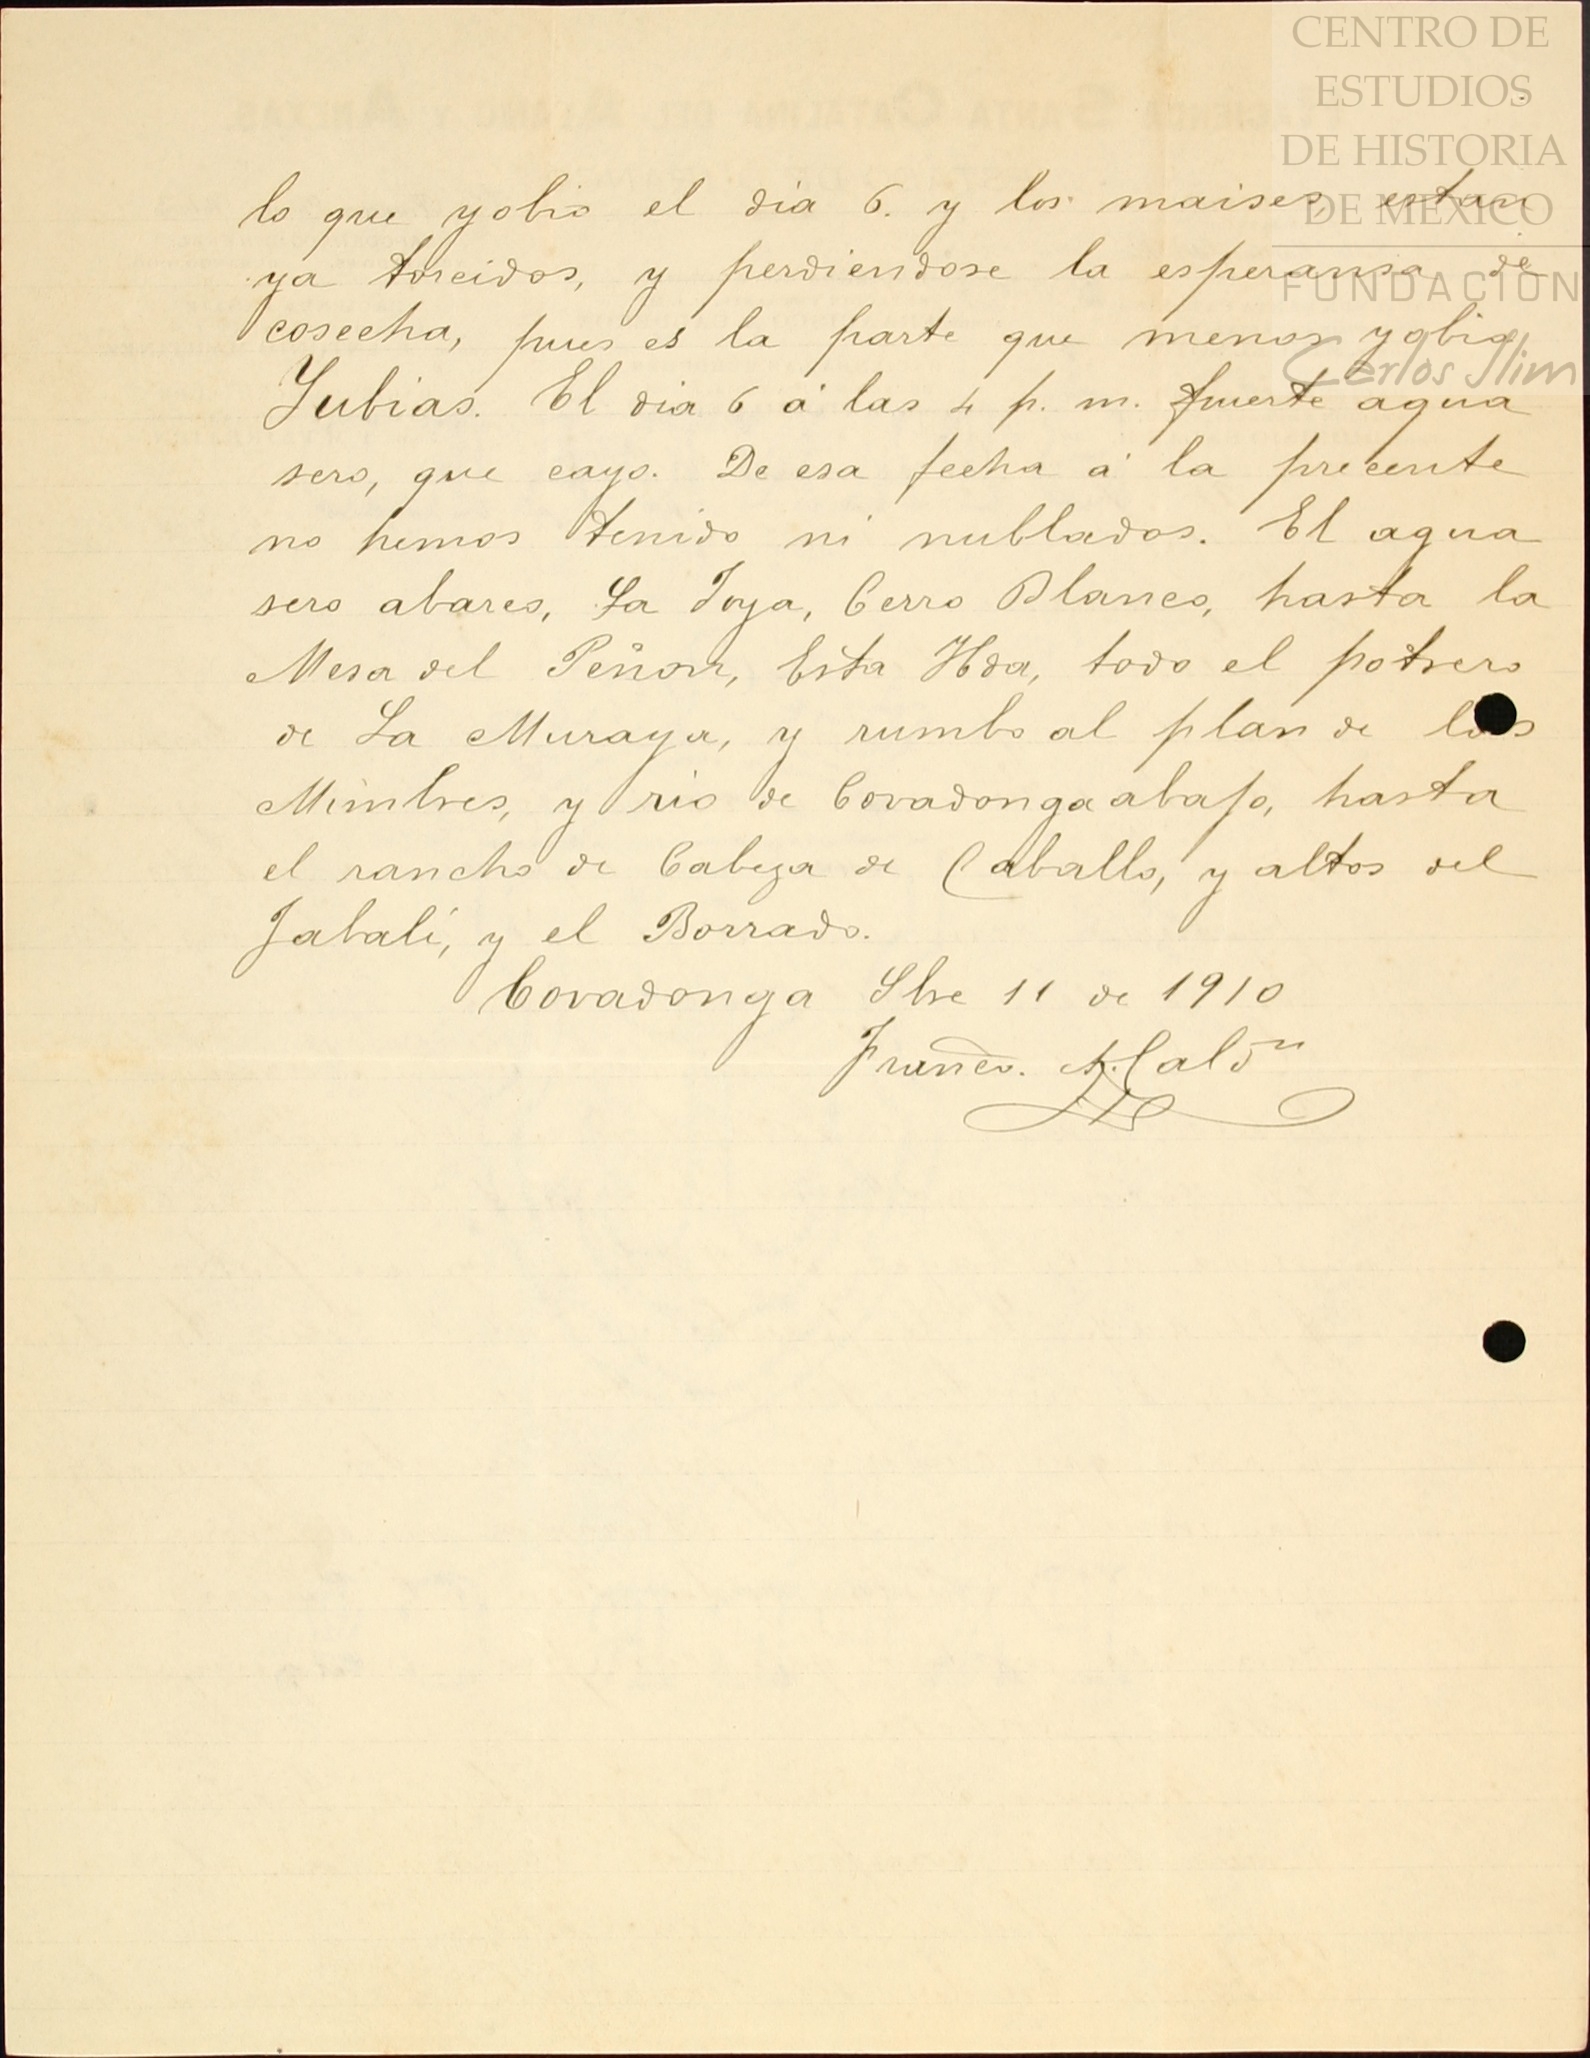 CENTRO DE
ESTUDIOS
DE HISTORIA
DE MÉXICO
FUNDACIÓN
Carlos Slim
lo que yobio el dia 6. y los maises, estan
ya torcidos, y perdiendose la esperansa de
cosecha, pues es la parte que menos yobio
Yubias. El dia 6 á las 4 p. m. fuerte agua
sero, que cayo. De esa fecha á la precente
no hemos tenido ni nublados. El agua
sero abarco, La Joya, Cerro Blanco, hasta la
Mesa del Peñon, Esta Hda, todo el potrero
de La Muraya, y rumbo al plan de los
Mimbres, y rio de Covadonga abajo, hasta
el rancho de Cabeza de Caballo, y altos del
Jabali, y el Borrado.
Covadonga Sbre 11 de 1910
Franco. A. Caldn